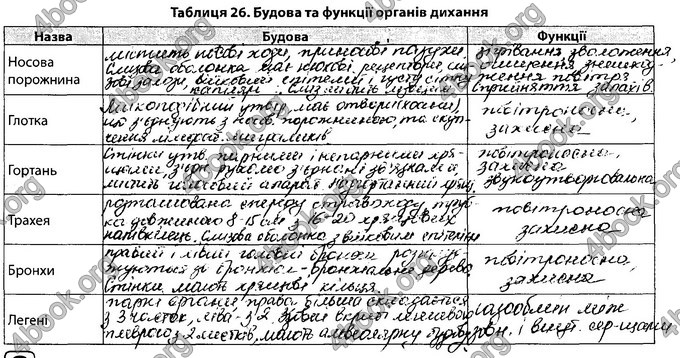 Таблиця 26. Будова та функції органів дихання
Назва Будова Функції
Носова порожнина
містить носові ходи, приносові пазухи
Слизва оболонка має нюхові рецептори,
війковий епітелій і густу сітку
капілярів
зігрівання, зволоження,
очищення, знешкод-
ження повітря.
Сприйняття запахів.
Глотка
має отвори (хоани),
що з'єднують з носов. порожниною, та скуп-
чення лімфоїд. мигдаликів
повітроносна,
захисна
Гортань
Стінки утв. парними і непарними хря-
щами, з'єдн. рухомо з'єднані зв'язками,
містить голосовий апарат надгортанний хрящ
повітроносна,
захисна,
звукоутворювальна
Трахея
розташована спереду стравоходу, труб-
ка довжиною 8-15 см з 16-20 хрящевих
напівкілець. Слизва оболонка з війковим епітелієм
повітроносна
захисна
Бронхи
правий і лівий головні бронхи розгалу-
жуються на бронхи - бронхіальне дерево
Стінки мають хрящеві кільця.
повітроносна,
захисна
Легені
парні органи права більша складається
з 3 часток, ліва - з 2. Зовні вкриті легеневою
плеврою з 2 листків, мають альвеолярну будову
газообмін між
зовн. і внут. середовищ
4book.org